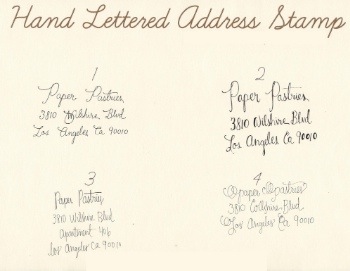 Hand Lettered Address Stamp
1
Paper Pastries
3810 Wilshire Blvd
Los Angeles Ca 90010
2
Paper Pastries
3810 Wilshire Blvd
Los Angeles Ca 90010
3
Paper Pastries
3810 Wilshire Blvd
apartment 416
Los Angeles CA 90010
4
paper pastries
3810 Wilshire Blvd
Los Angeles CA 90010